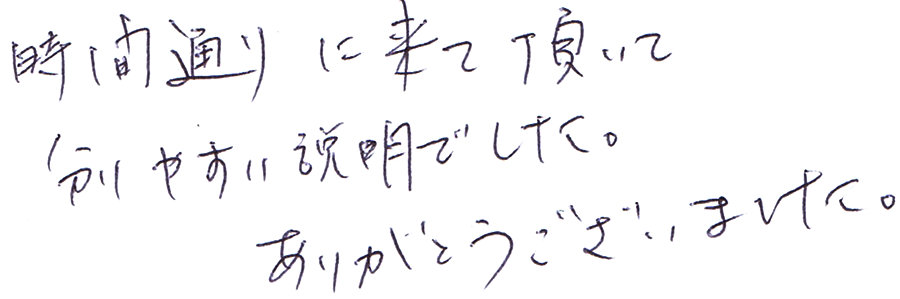 時間通りに来て頂いて
分りやすい説明でした。
ありがとうございました。